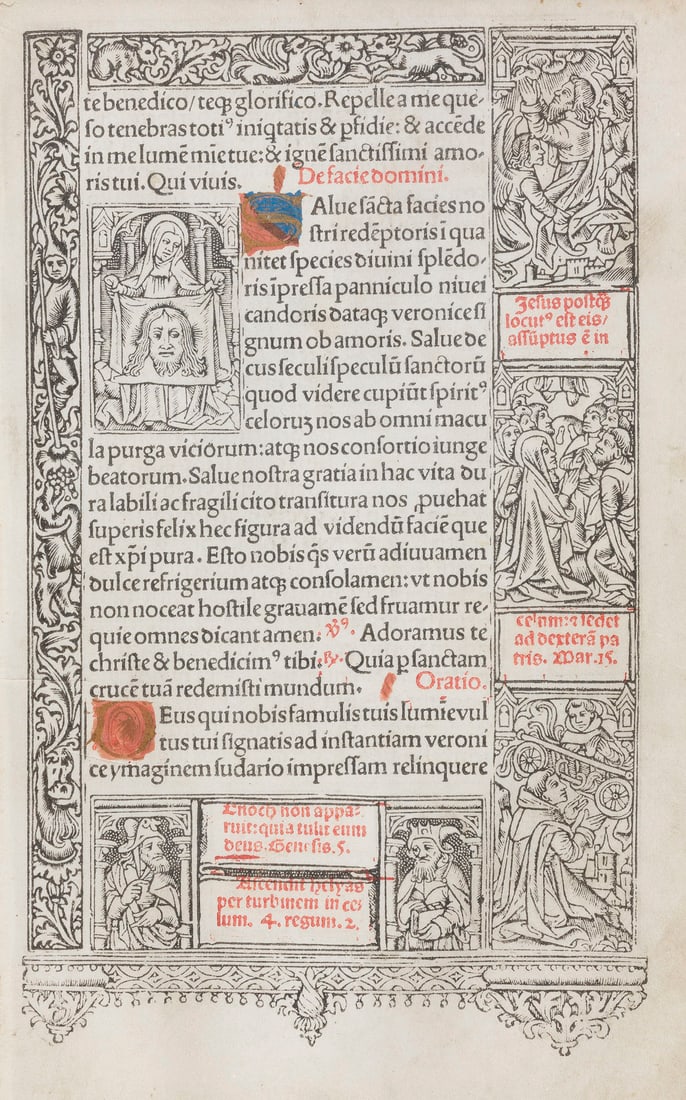 te benedico/teqʒ glorifico. Repelle a me que-
so tenebras totiꝰ iniq̃tatis & ꝑfidie: & accēde
in me lumē mīe tue: & ignē sanctissimi amo-
ris tui. Qui viuis. De facie domini.
SAlue sācta facies no
stri redēptoris ī qua
nitet species diuini splēdo-
ris īpressa panniculo niuei
candoris dataqʒ veronice si
gnum ob amoris. Salue de
cus seculi speculū sanctorū
quod videre cupiūt spiritꝰ
celoruʒ nos ab omni macu
la purga viciorum: atqʒ nos consortio iunge
beatorum. Salue nostra gratia in hac vita du
ra labili ac fragili cito transitura nos ꝓuehat
superis felix hec figura ad videndū faciē que
est xp̄i pura. Esto nobis q̄s verū adiuuamen
dulce refrigerium atqʒ consolamen: vt nobis
non noceat hostile grauamē sed fruamur re-
quie omnes dicant amen. ℣ꝰ. Adoramus te
christe & benedicimꝰ tibi. ℟. Quia ꝑ sanctam
crucē tuā redemisti mundum. Oratio.
DEus qui nobis famulis tuis lumīe vul
tus tui signatis ad instantiam veroni
ce ymaginem sudario impressam relinquere
Jesus postqʒ
locutꝰ est eis/
assūptus ē in
celum: ⁊ sedet
ad dexterā pa
tris. Mar. 15.
Enoch non appa-
ruit: quia tulit eum
deus. Genesis. 5.
Ascendit helyas
per turbinem in ce-
lum. 4. regum. 2.